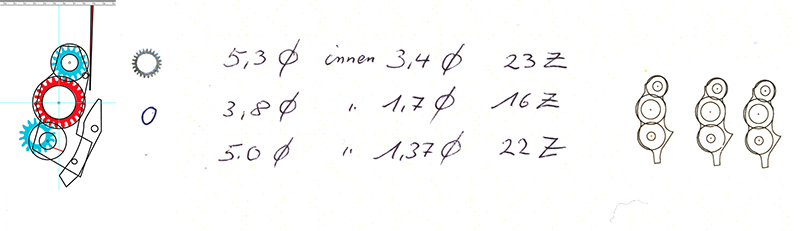 5,3 Ø innen 3,4 Ø 23 Z
3,8 Ø " 1,7 Ø 16 Z
5.0 Ø " 1,37 Ø 22 Z